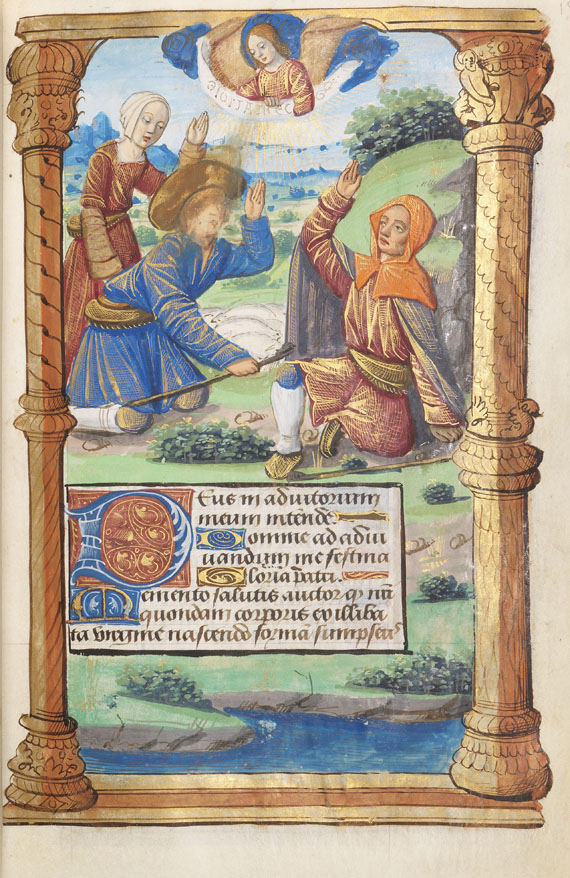 GLORIA IN EXC
Deus in adiutorium
meum intende.
Domine ad adiu
uandum me festina
Gloria patri.
Memento salutis auctor qꝫ nr̄i
quondam corporis ex illiba
ta virgine nascendo formā sumpseris